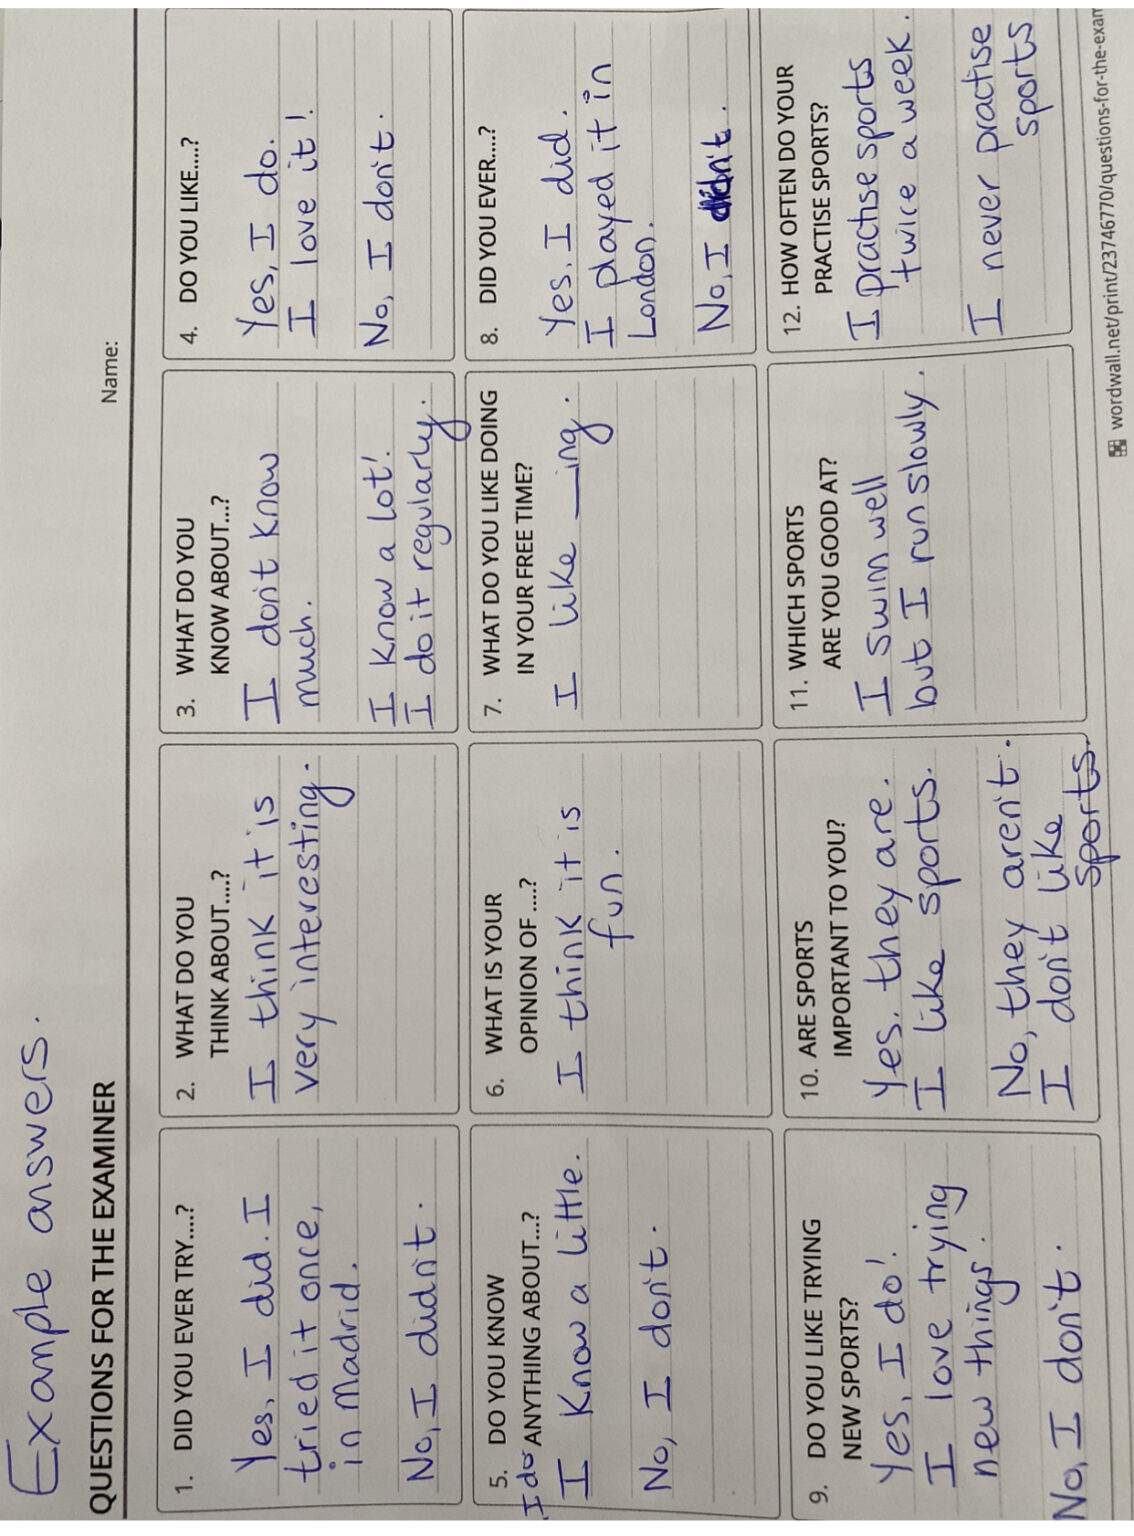 Example answers.
Name:
QUESTIONS FOR THE EXAMINER
1. DID YOU EVER TRY....?
Yes, I did. I
tried it once,
in Madrid.
No, I didn't.
2. WHAT DO YOU
THINK ABOUT....?
I think it is
very interesting.
3. WHAT DO YOU
KNOW ABOUT...?
I don't know
much.
I know a lot!
I do it regularly.
4. DO YOU LIKE....?
Yes, I do.
I love it!
No, I don't.
5. DO YOU KNOW
ANYTHING ABOUT...?
I do
I know a little.
No, I don't.
6. WHAT IS YOUR
OPINION OF ....?
I think it is
fun.
7. WHAT DO YOU LIKE DOING
IN YOUR FREE TIME?
I like __ing.
8. DID YOU EVER...?
Yes, I did.
I played it in
London.
No, I didn't.
9. DO YOU LIKE TRYING
NEW SPORTS?
Yes, I do!
I love trying
new things.
No, I don't.
10. ARE SPORTS
IMPORTANT TO YOU?
Yes, they are.
I like sports.
No, they aren't.
I don't like
sports.
11. WHICH SPORTS
ARE YOU GOOD AT?
I swim well
but I run slowly.
12. HOW OFTEN DO YOUR
PRACTISE SPORTS?
I practise sports
twice a week.
I never practise
sports
wordwall.net/print/23746770/questions-for-the-exam